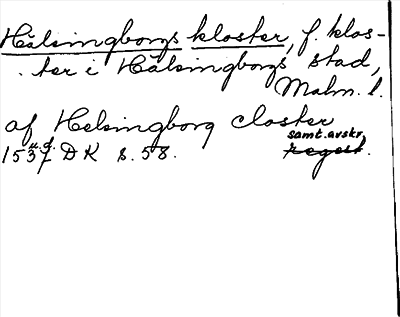 Hälsingborgs kloster, f. klos-
ter i Hälsingborgs stad,
Malm. l.
af Helsingborg closter
samt. avskr.
u.d.
1537 DK s. 58. regest.